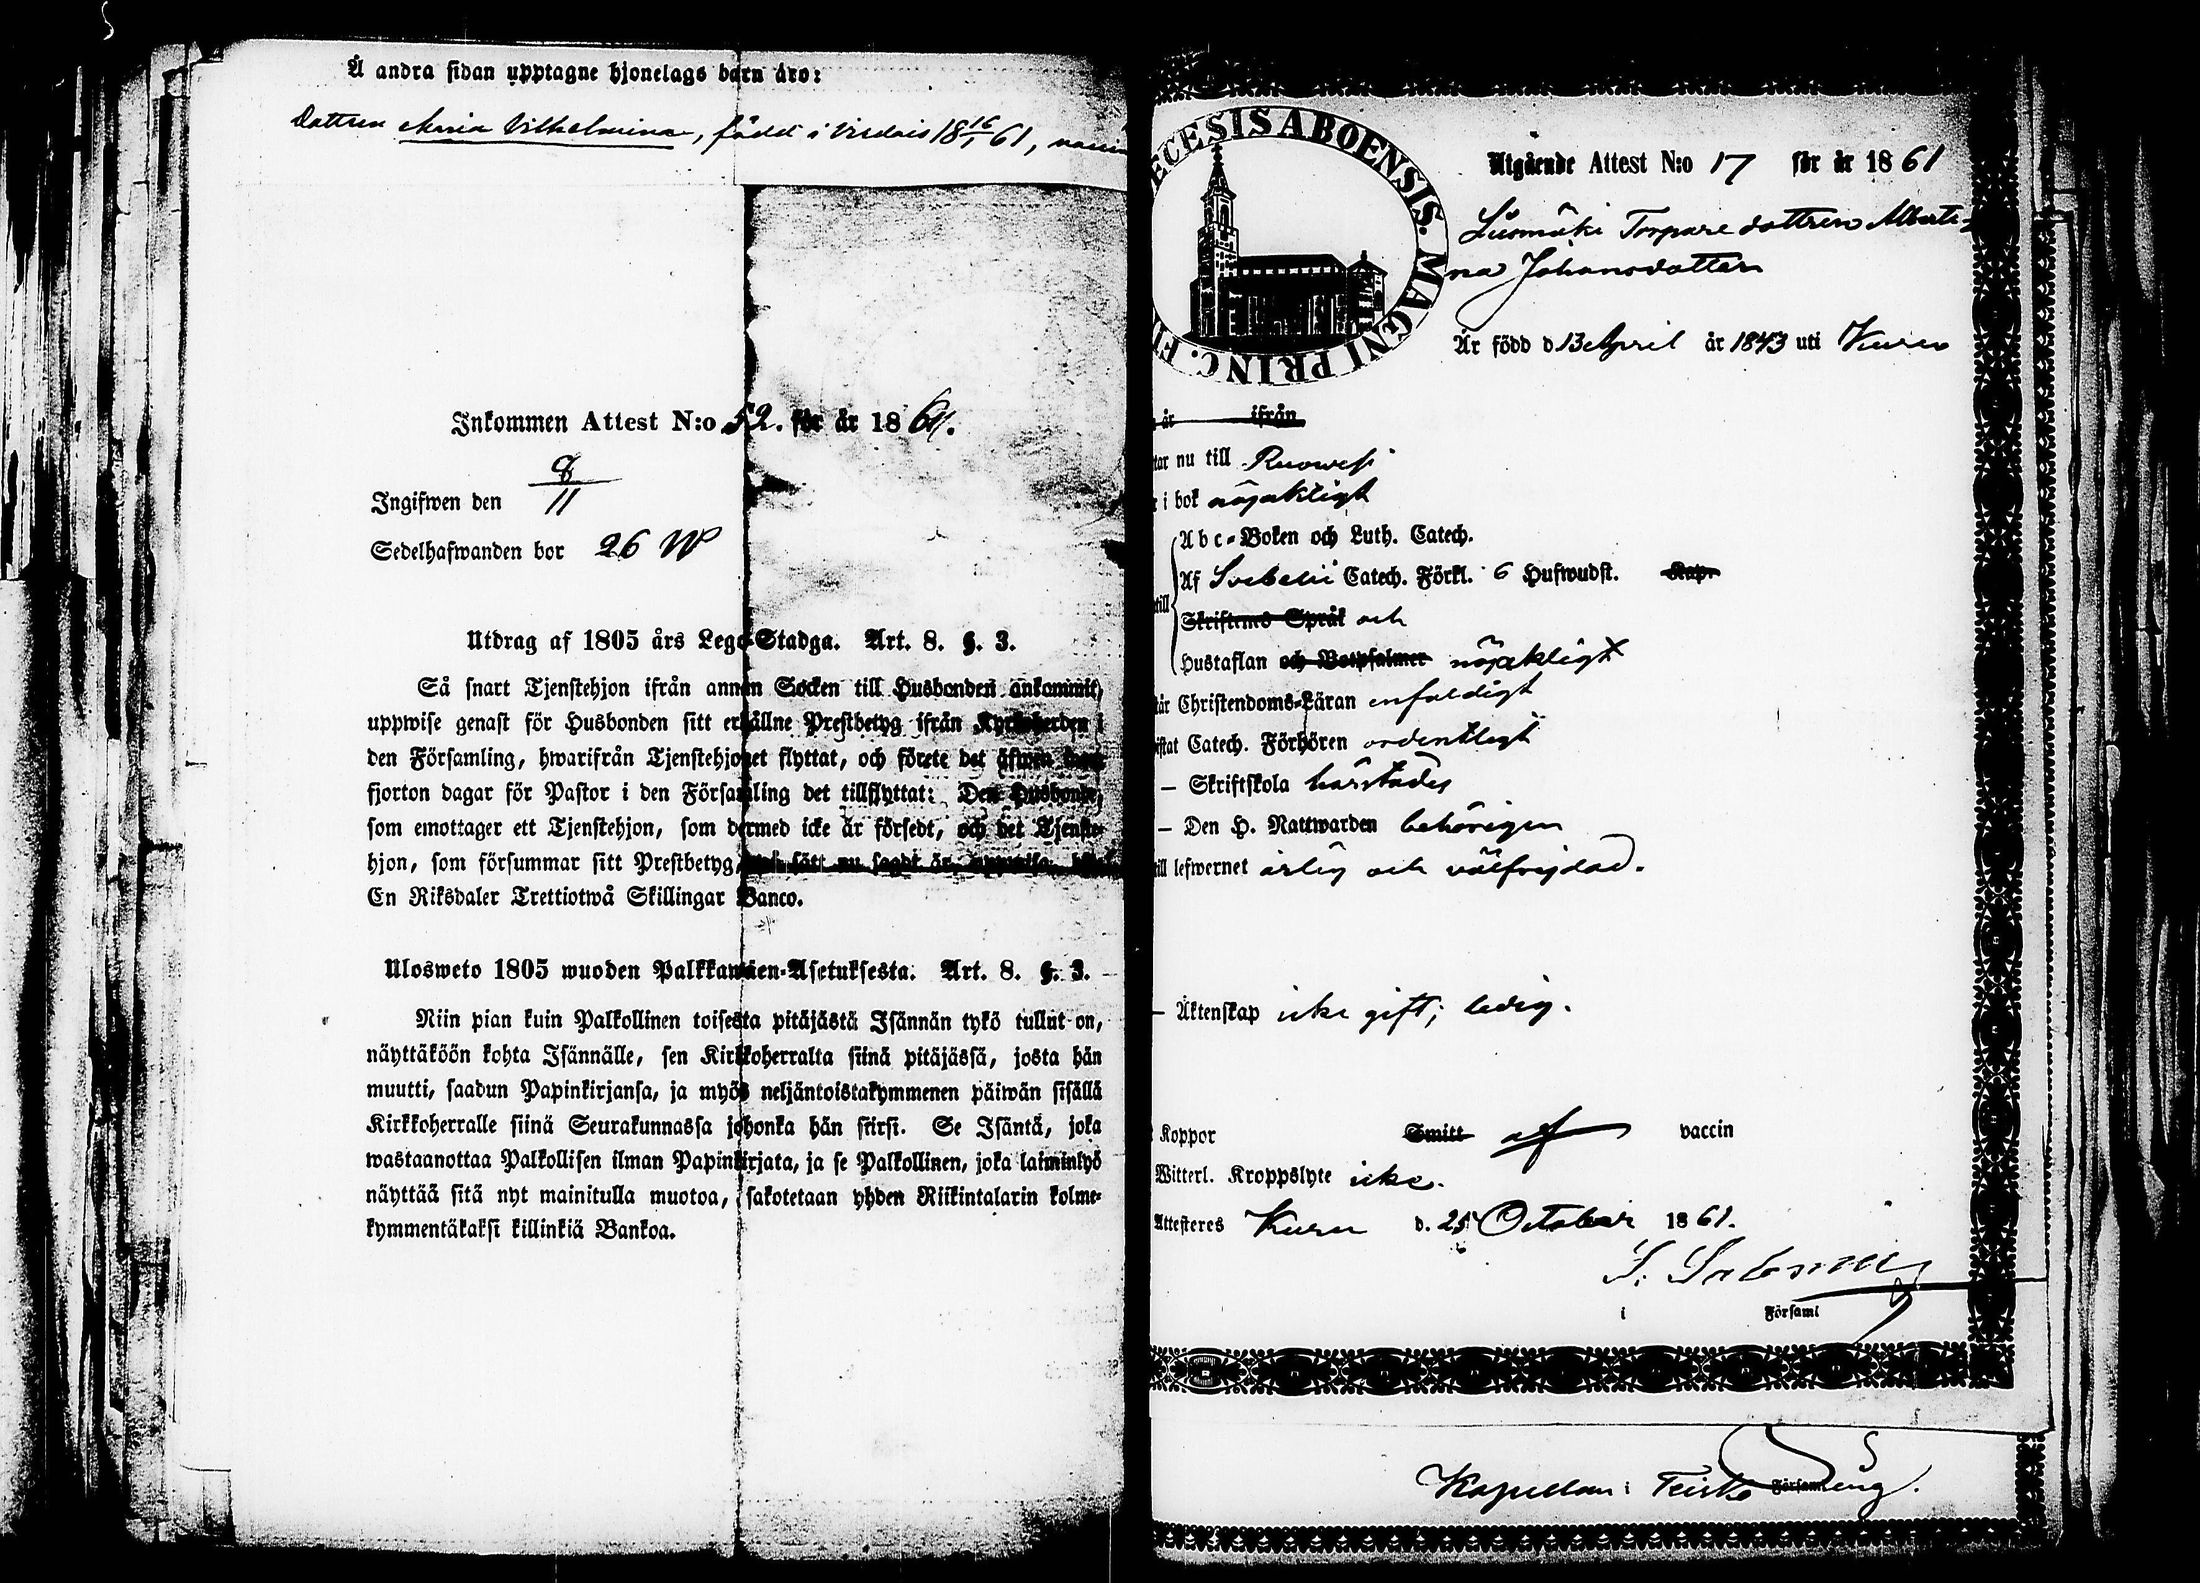 Å andra sidan upptagne hjonelags barn äro:
Dottren Maria Vilhelmina, född i Virdois 18 16/1 61,
Inkommen Attest N:o 52. för år 1861.
Ingifwen den 8/11
Sedelhafwanden bor 26 W
Utdrag af 1805 års Lego-Stadga. Art. 8. §. 3.
Så snart Tjenstehjon ifrån annan Socken till Husbonden ankommit,
uppwise genast för Husbonden sitt erhållne Prestbetyg ifrån Kyrkoherden i
den Församling, hwarifrån Tjenstehjonet flyttat, och förete det äfwen inom
fjorton dagar för Pastor i den Församling det tillflyttat: Den Husbonde,
som emottager ett Tjenstehjon, som dermed icke är försedt, och det Tjenste-
hjon, som försummar sitt Prestbetyg, på sätt nu sagdt är, uppwisa,
En Riksdaler Trettiotwå Skillingar Banco.
Ulosweto 1805 wuoden Palkkawäen-Asetuksesta. Art. 8. §. 3.
Niin pian kuin Palkollinen toisesta pitäjästä Isännän tykö tullut on,
näyttäköön kohta Isännälle, sen Kirkkoherralta siinä pitäjässä, josta hän
muutti, saadun Papinkirjansa, ja myös neljäntoistakymmenen päiwän sisällä
Kirkkoherralle siinä Seurakunnassa johonka hän siirsi. Se Isäntä, joka
wastaanottaa Palkollisen ilman Papinkirjata, ja se Palkollinen, joka laiminlyö
näyttää sitä nyt mainitulla muotoa, sakotetaan yhden Riikintalarin kolme-
kymmentäkaksi killinkiä Bankoa.
ECESIS ABOENSIS. MAGNI PRINC. FI
Utgående Attest N:o 17 för år 1861
Liusmäki Torpare dottren Alberti-
na Johansdotter
Är född d 13 April år 1843 uti Kuru
år ifrån
tar nu till Ruowesi
i bok nöjaktligt
Abc-Boken och Luth. Catech.
Af Svebelii Catech. Förkl. 6 Hufwudst. Kap.
till
Skriftenes Språk och
Hustaflan och Botpsalmer nöjaktligt
tår Christendoms-Läran enfaldigt
istat Catech. Förhören ordentligt
— Skriftskola härstädes
— Den H. Nattwarden behörigen
till lefwernet ärlig och välfrejdad.
— Äktenskap icke gift; ledig.
Koppor Smitt af vaccin
Witterl. Kroppslyte icke.
Attesteres Kuru d. 25 October 1861.
i Församl
Kapellan i Teisko Församling.